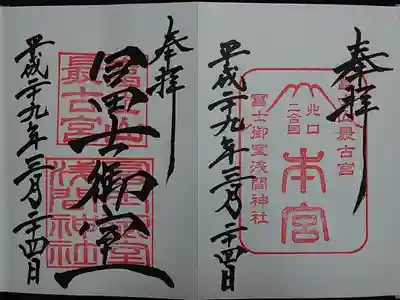 奉拝
冨士山
最古宮
冨士御室
冨士御室
浅間神社
平成二十九年三月二十四日
奉拝
冨士山最古宮
北口
二合目
本宮
冨士御室浅間神社
平成二十九年三月二十四日